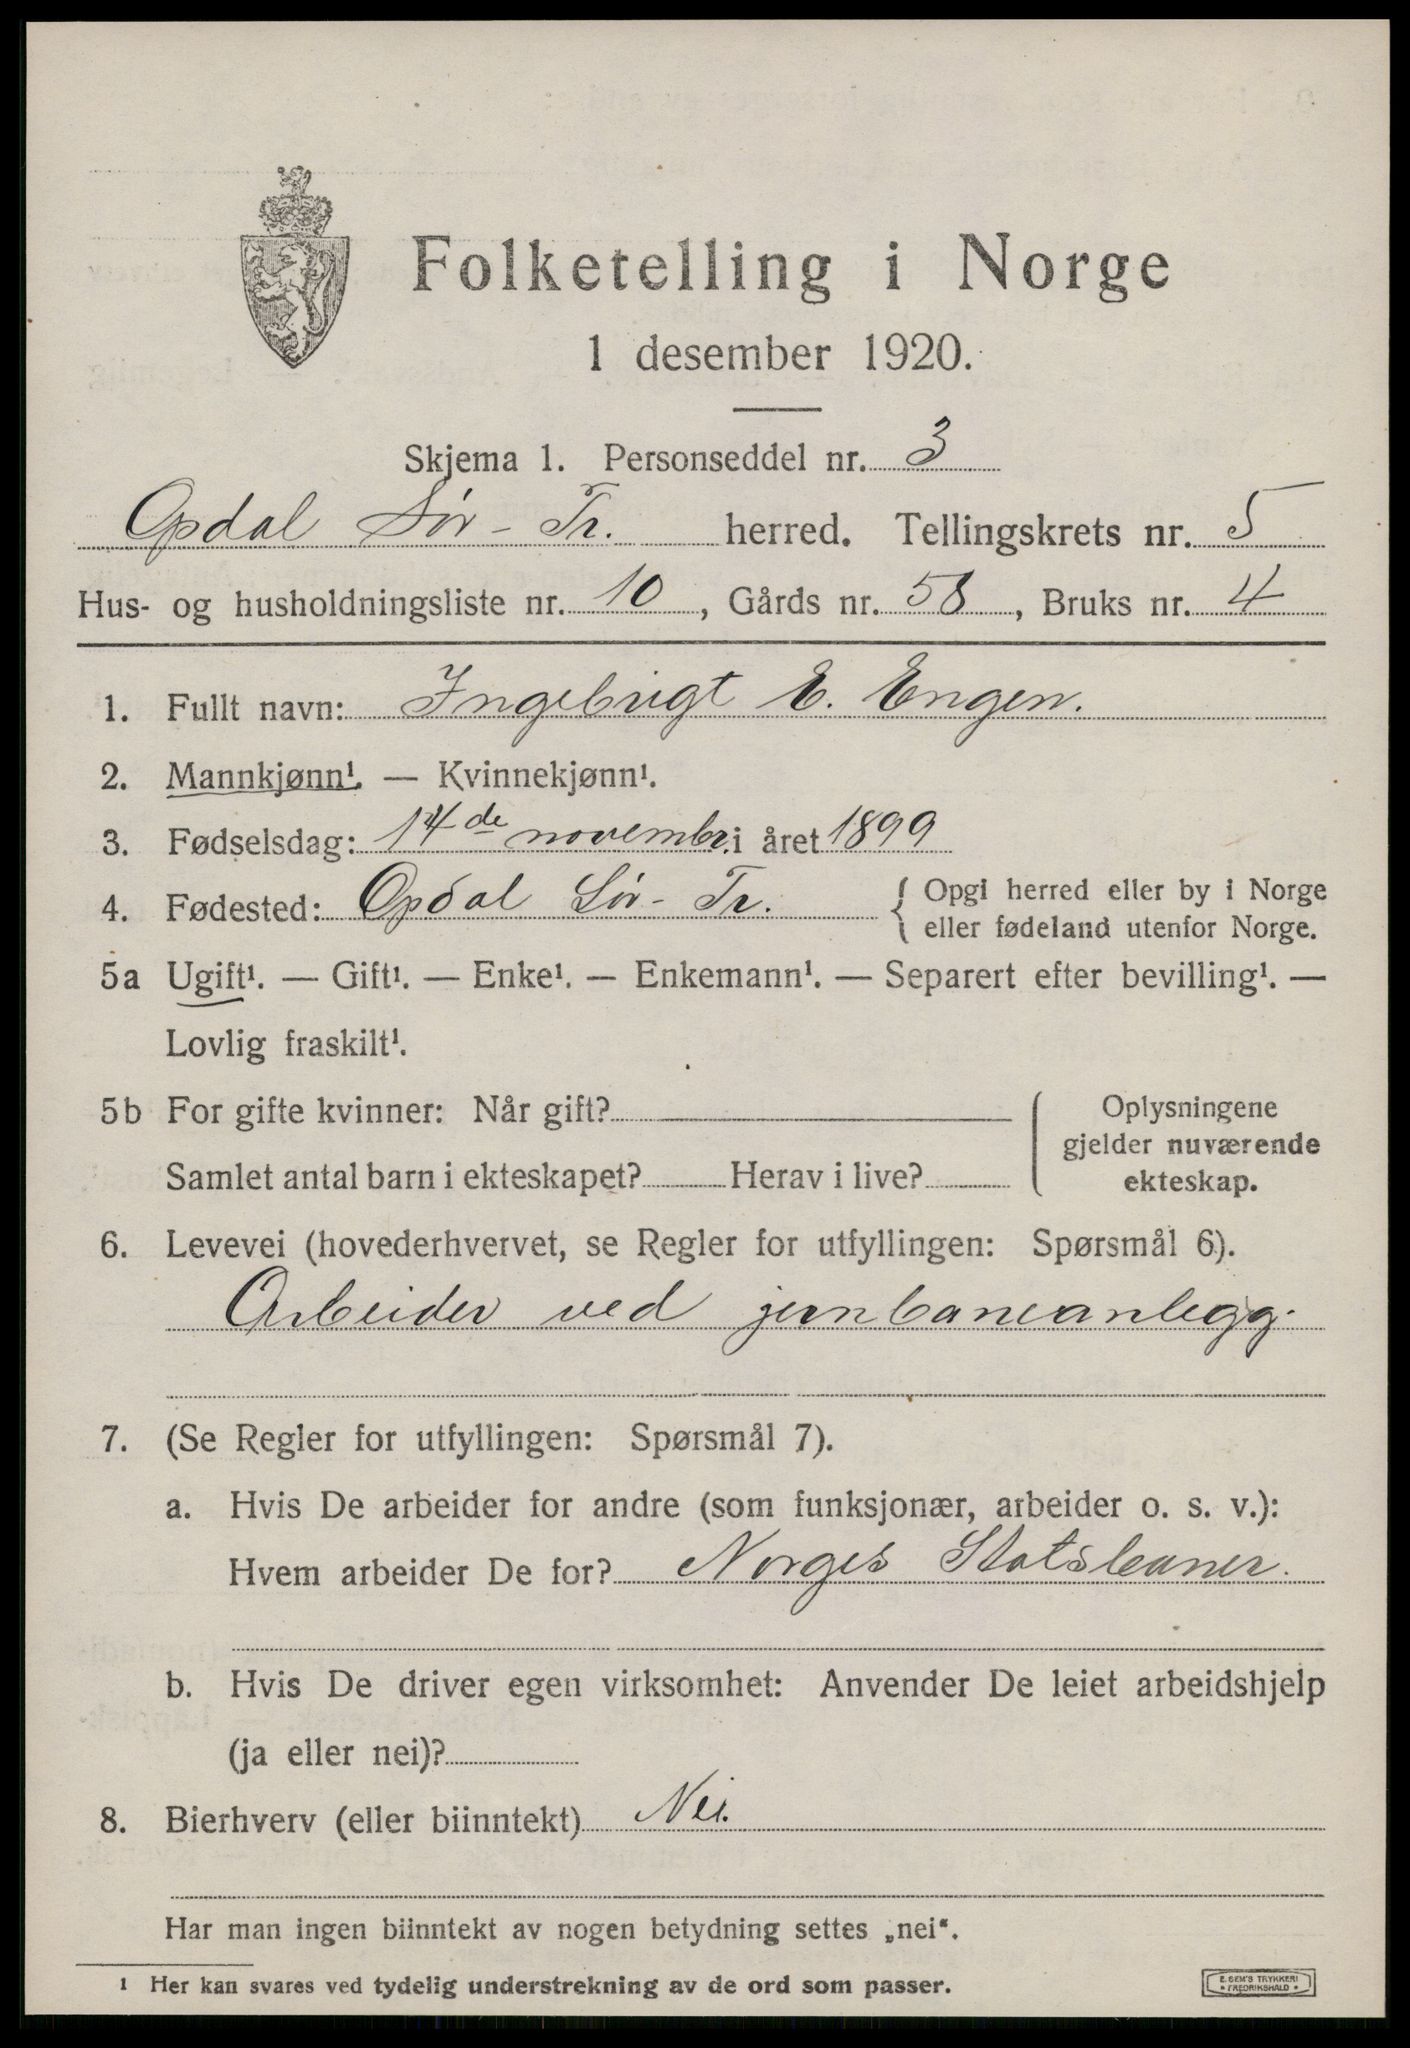 Folketelling i Norge
1 desember 1920.
Skjema 1. Personseddel nr. 3
Opdal Sør-Tr. herred. Tellingskrets nr. 5
Hus- og husholdningsliste nr. 10, Gårds nr. 58, Bruks nr. 4
1. Fullt navn: Ingebrigt E. Engen.
2. Mannkjønn¹. — Kvinnekjønn¹.
3. Fødselsdag: 14de novembr. i året 1899
4. Fødested: Opdal Sør-Tr. { Opgi herred eller by i Norge
eller fødeland utenfor Norge.
5a Ugift¹. — Gift¹. — Enke¹. — Enkemann¹. — Separert efter bevilling¹. —
Lovlig fraskilt¹.
5b For gifte kvinner: Når gift?
Samlet antal barn i ekteskapet? Herav i live?
Oplysningene
gjelder nuværende
ekteskap.
6. Levevei (hovederhvervet, se Regler for utfyllingen: Spørsmål 6).
Arbeider ved jernbaneanlegg.
7. (Se Regler for utfyllingen: Spørsmål 7).
a. Hvis De arbeider for andre (som funksjonær, arbeider o. s. v.):
Hvem arbeider De for? Norges Statsbaner.
b. Hvis De driver egen virksomhet: Anvender De leiet arbeidshjelp
(ja eller nei)?
8. Bierhverv (eller biinntekt) Nei.
Har man ingen biinntekt av nogen betydning settes „nei“.
¹ Her kan svares ved tydelig understrekning av de ord som passer.
E. SEM'S TRYKKERI
• FREDRIKSHALD •